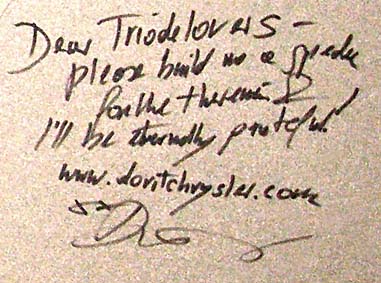 Dear Triodelovers –
please build me a speaker
for the theremin
I'll be eternally grateful!
www.doritchrysler.com